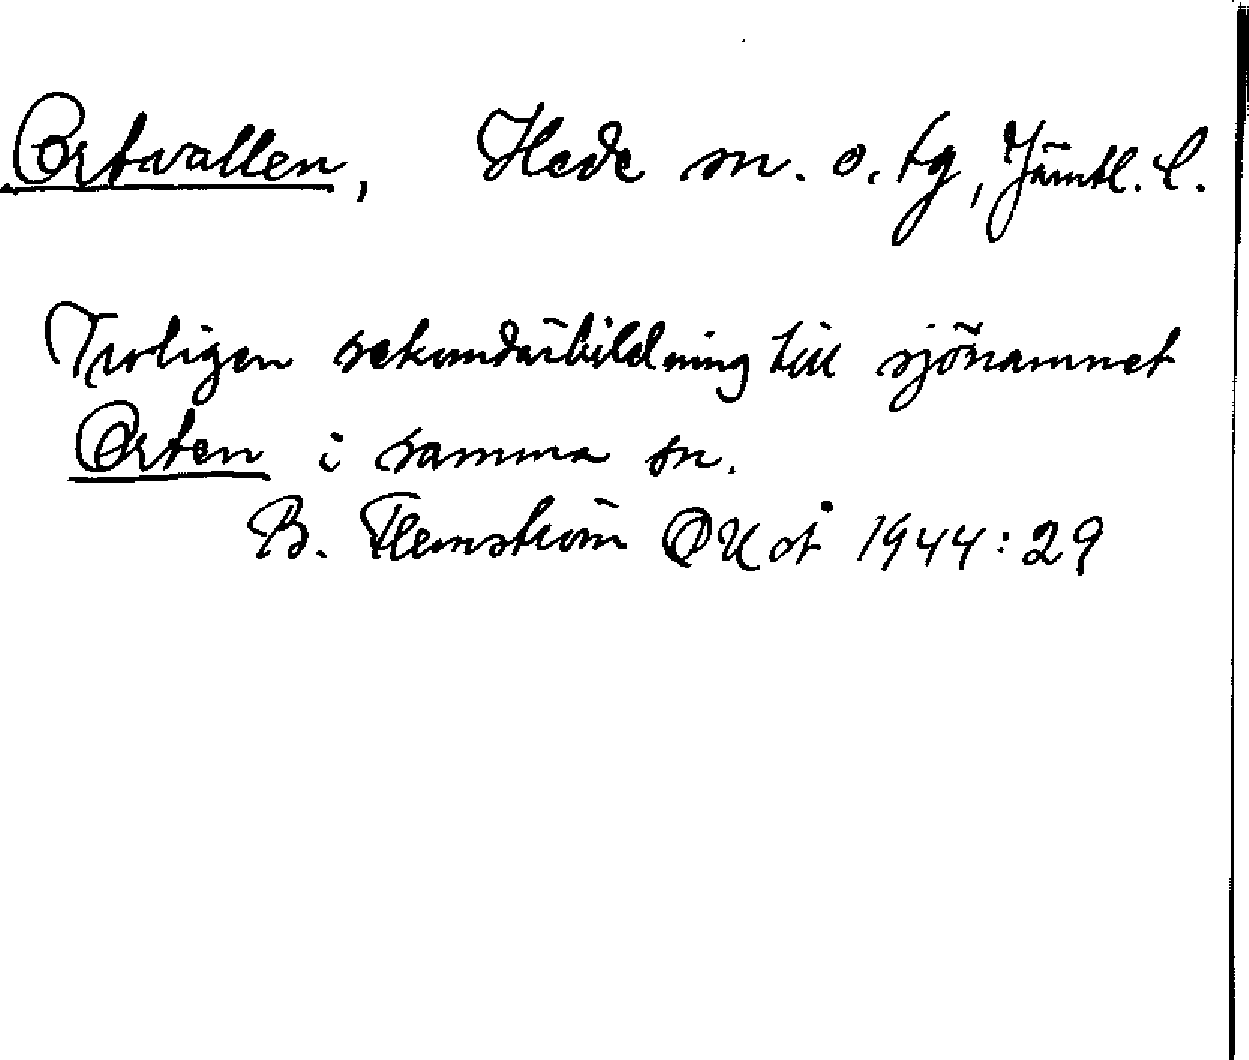 Ortavallen, Hede sn. o. tg, Jämtl. l.
Troligen sekundärbildning till sjönamnet
Orten i samma sn.
B. Flemström OUÅ 1944:29